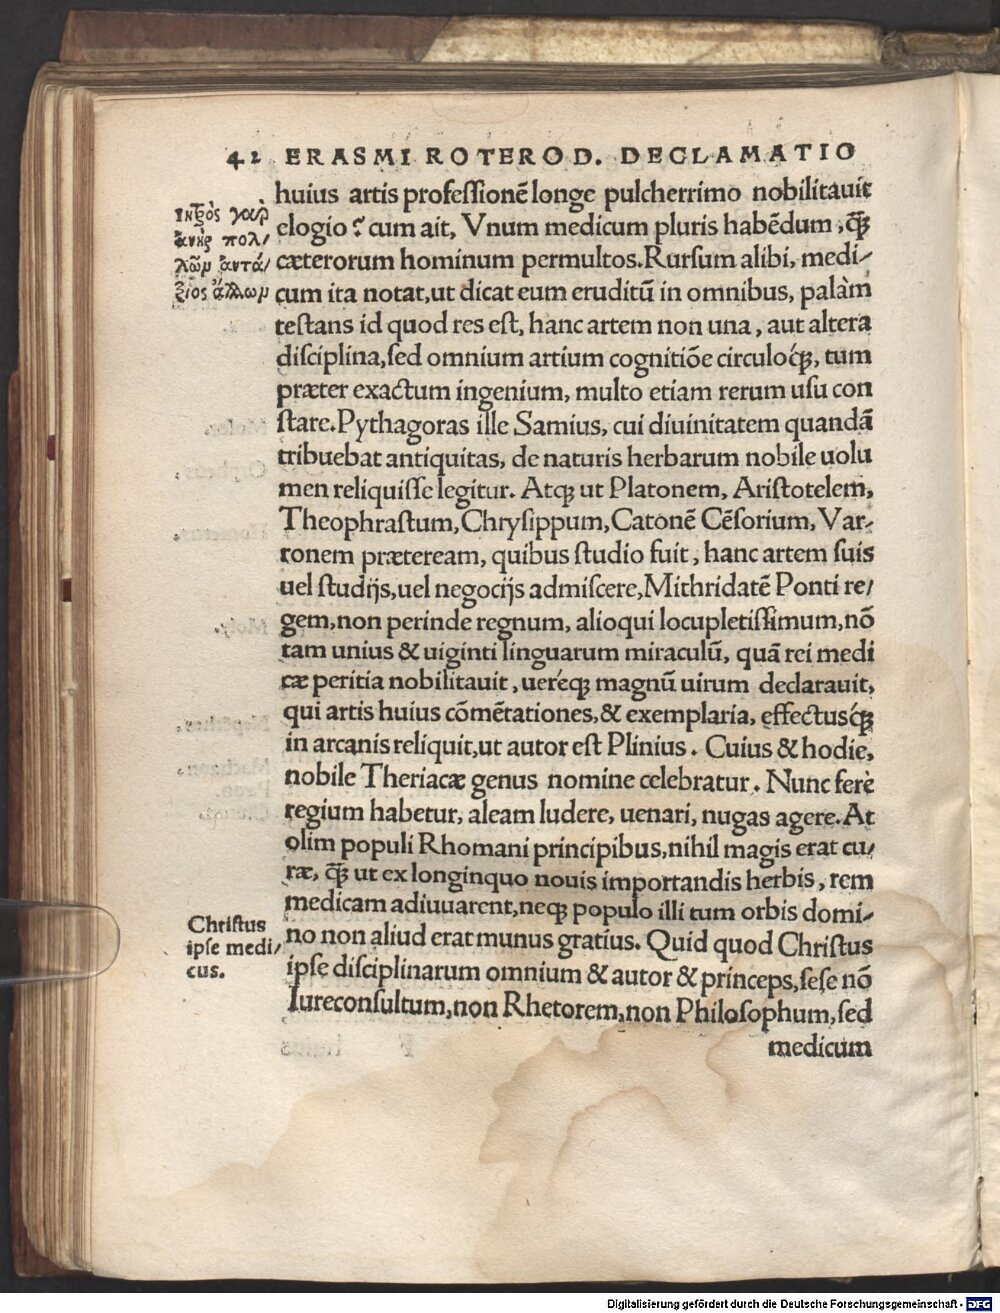 42 ERASMI ROTEROD. DECLAMATIO
huius artis professionē longe pulcherrimo nobilitauit
elogio? cum ait, Vnum medicum pluris habēdum, q̃ꝫ
cæterorum hominum permultos. Rursum alibi, medi-
cum ita notat, ut dicat eum eruditū in omnibus, palàm
testans id quod res est, hanc artem non una, aut altera
disciplina, sed omnium artium cognitiōe circuloq́ꝫ, tum
præter exactum ingenium, multo etiam rerum usu con
stare. Pythagoras ille Samius, cui diuinitatem quandā
tribuebat antiquitas, de naturis herbarum nobile uolu
men reliquisse legitur. Atqꝫ ut Platonem, Aristotelem,
Theophrastum, Chrysippum, Catonē Cēsorium, Var-
ronem præteream, quibus studio fuit, hanc artem suis
uel studijs, uel negocijs admiscere, Mithridatē Ponti re/
gem, non perinde regnum, alioqui locupletissimum, nō
tam unius & uiginti linguarum miraculū, quā rei medi
cæ peritia nobilitauit, uereq́ꝫ magnū uirum declarauit,
qui artis huius cōmētationes, & exemplaria, effectusq́ꝫ
in arcanis reliquit, ut autor est Plinius. Cuius & hodie,
nobile Theriacæ genus nomine celebratur. Nunc ferè
regium habetur, aleam ludere, uenari, nugas agere. At
olim populi Rhomani principibus, nihil magis erat cu/
ræ, q̃ꝫ ut ex longinquo nouis importandis herbis, rem
medicam adiuuarent, neqꝫ populo illi tum orbis domi-
no non aliud erat munus gratius. Quid quod Christus
ipse disciplinarum omnium & autor & princeps, sese nō
Iureconsultum, non Rhetorem, non Philosophum, sed
medicum
ἰητρὸς γὰρ
ἀνὴρ πολ/
λῶμ ἀντά/
ξιος ἄλλωμ
Christus
ipse medi/
cus.
Digitalisierung gefördert durch die Deutsche Forschungsgemeinschaft - DFG